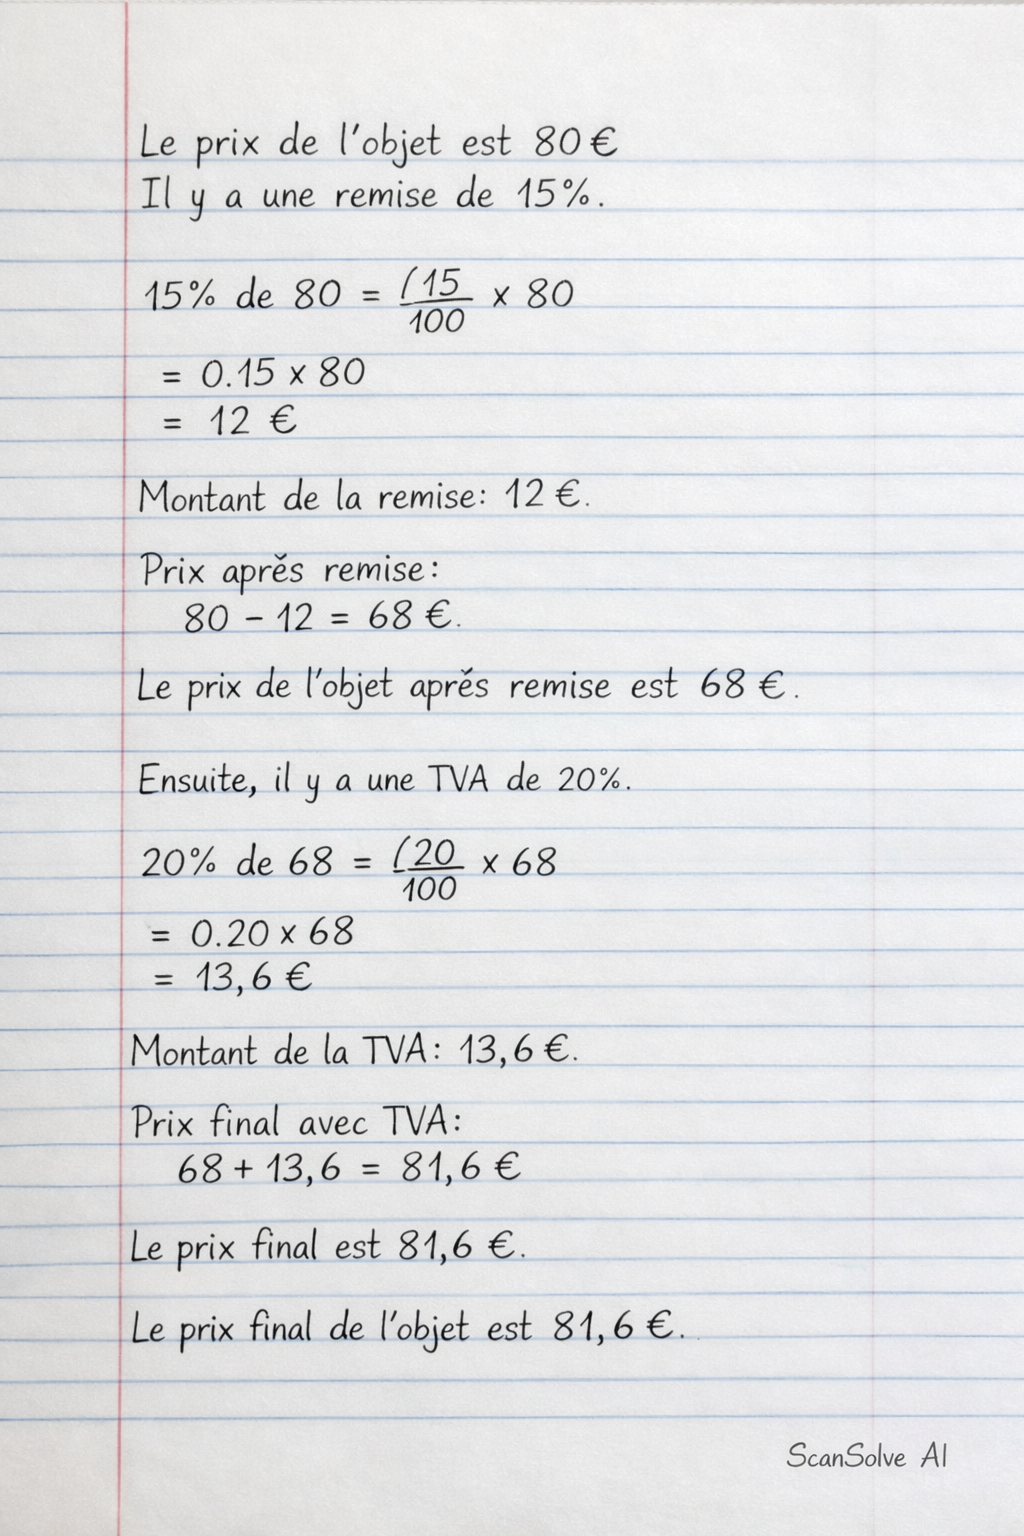 Le prix de l'objet est 80 €
Il y a une remise de 15%.
15% de 80 = (15/100 x 80
= 0.15 x 80
= 12 €
Montant de la remise: 12 €.
Prix aprěs remise:
80 - 12 = 68 €.
Le prix de l'objet aprěs remise est 68 €.
Ensuite, il y a une TVA de 20%.
20% de 68 = (20/100 x 68
= 0.20 x 68
= 13,6 €
Montant de la TVA: 13,6 €.
Prix final avec TVA:
68 + 13,6 = 81,6 €
Le prix final est 81,6 €.
Le prix final de l'objet est 81,6 €.
ScanSolve AI